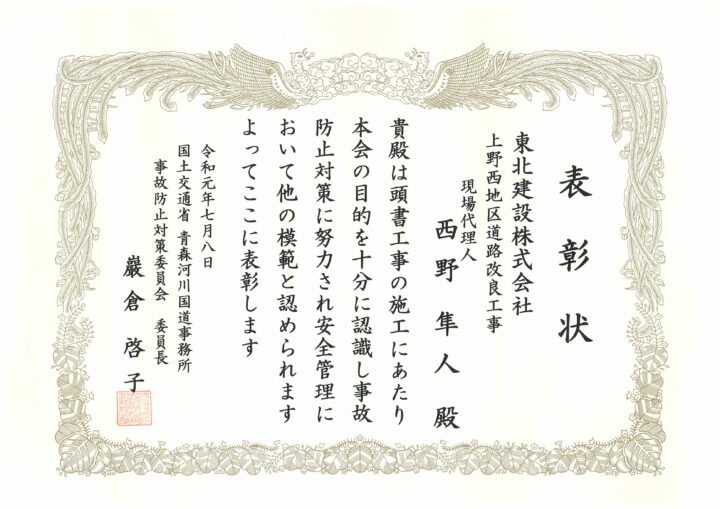 表彰状
東北建設株式会社
上野西地区道路改良工事
現場代理人
西野隼人殿
貴殿は頭書工事の施工にあたり
本会の目的を十分に認識し事故
防止対策に努力され安全管理に
おいて他の模範と認められます
よってここに表彰します
令和元年七月八日
国土交通省 青森河川国道事務所
事故防止対策委員会 委員長
巖倉啓子